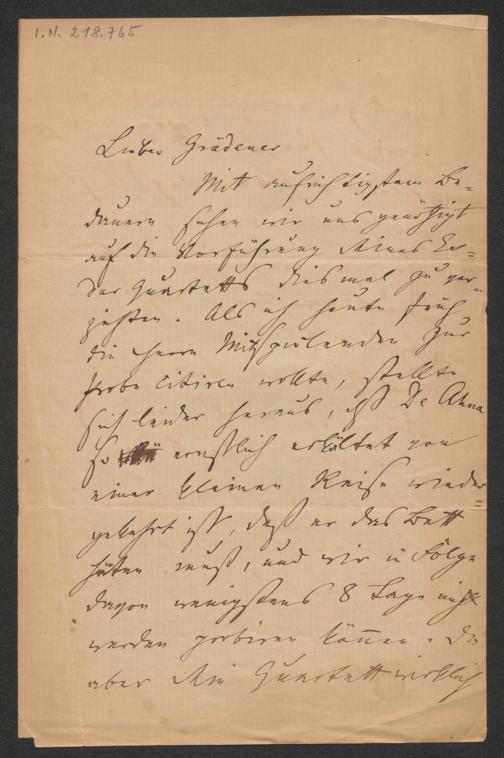 I.N. 218.765
Lieber Grädener
Mit aufrichtigstem Be-
dauern sehen wir uns genöthigt
auf die Vorführung Deines
Quartetts diesmal zu ver-
zichten. Als ich heute früh
die Herrn Mitspielenden zur
Probe citiren wollte, stellte
sich leider heraus, daß De Ahna
so ernstlich erkältet von
einer kleinen Reise wieder-
gekehrt ist, daß er das Bett
hüten muß, und wir in Folge
davon wenigstens 8 Tage nicht
werden probiren können. Da
aber Dein Quartett wirklich